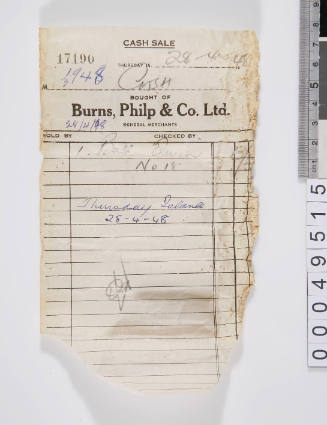 CASH SALE
17190
THURSDAY IS. 28-4-48
1948
M Cash
BOUGHT OF
Burns, Philp & Co. Ltd.
28/4/48 GENERAL MERCHANTS
SOLD BY CHECKED BY
1
No 18
Thursday Island
28-4-48
00049515